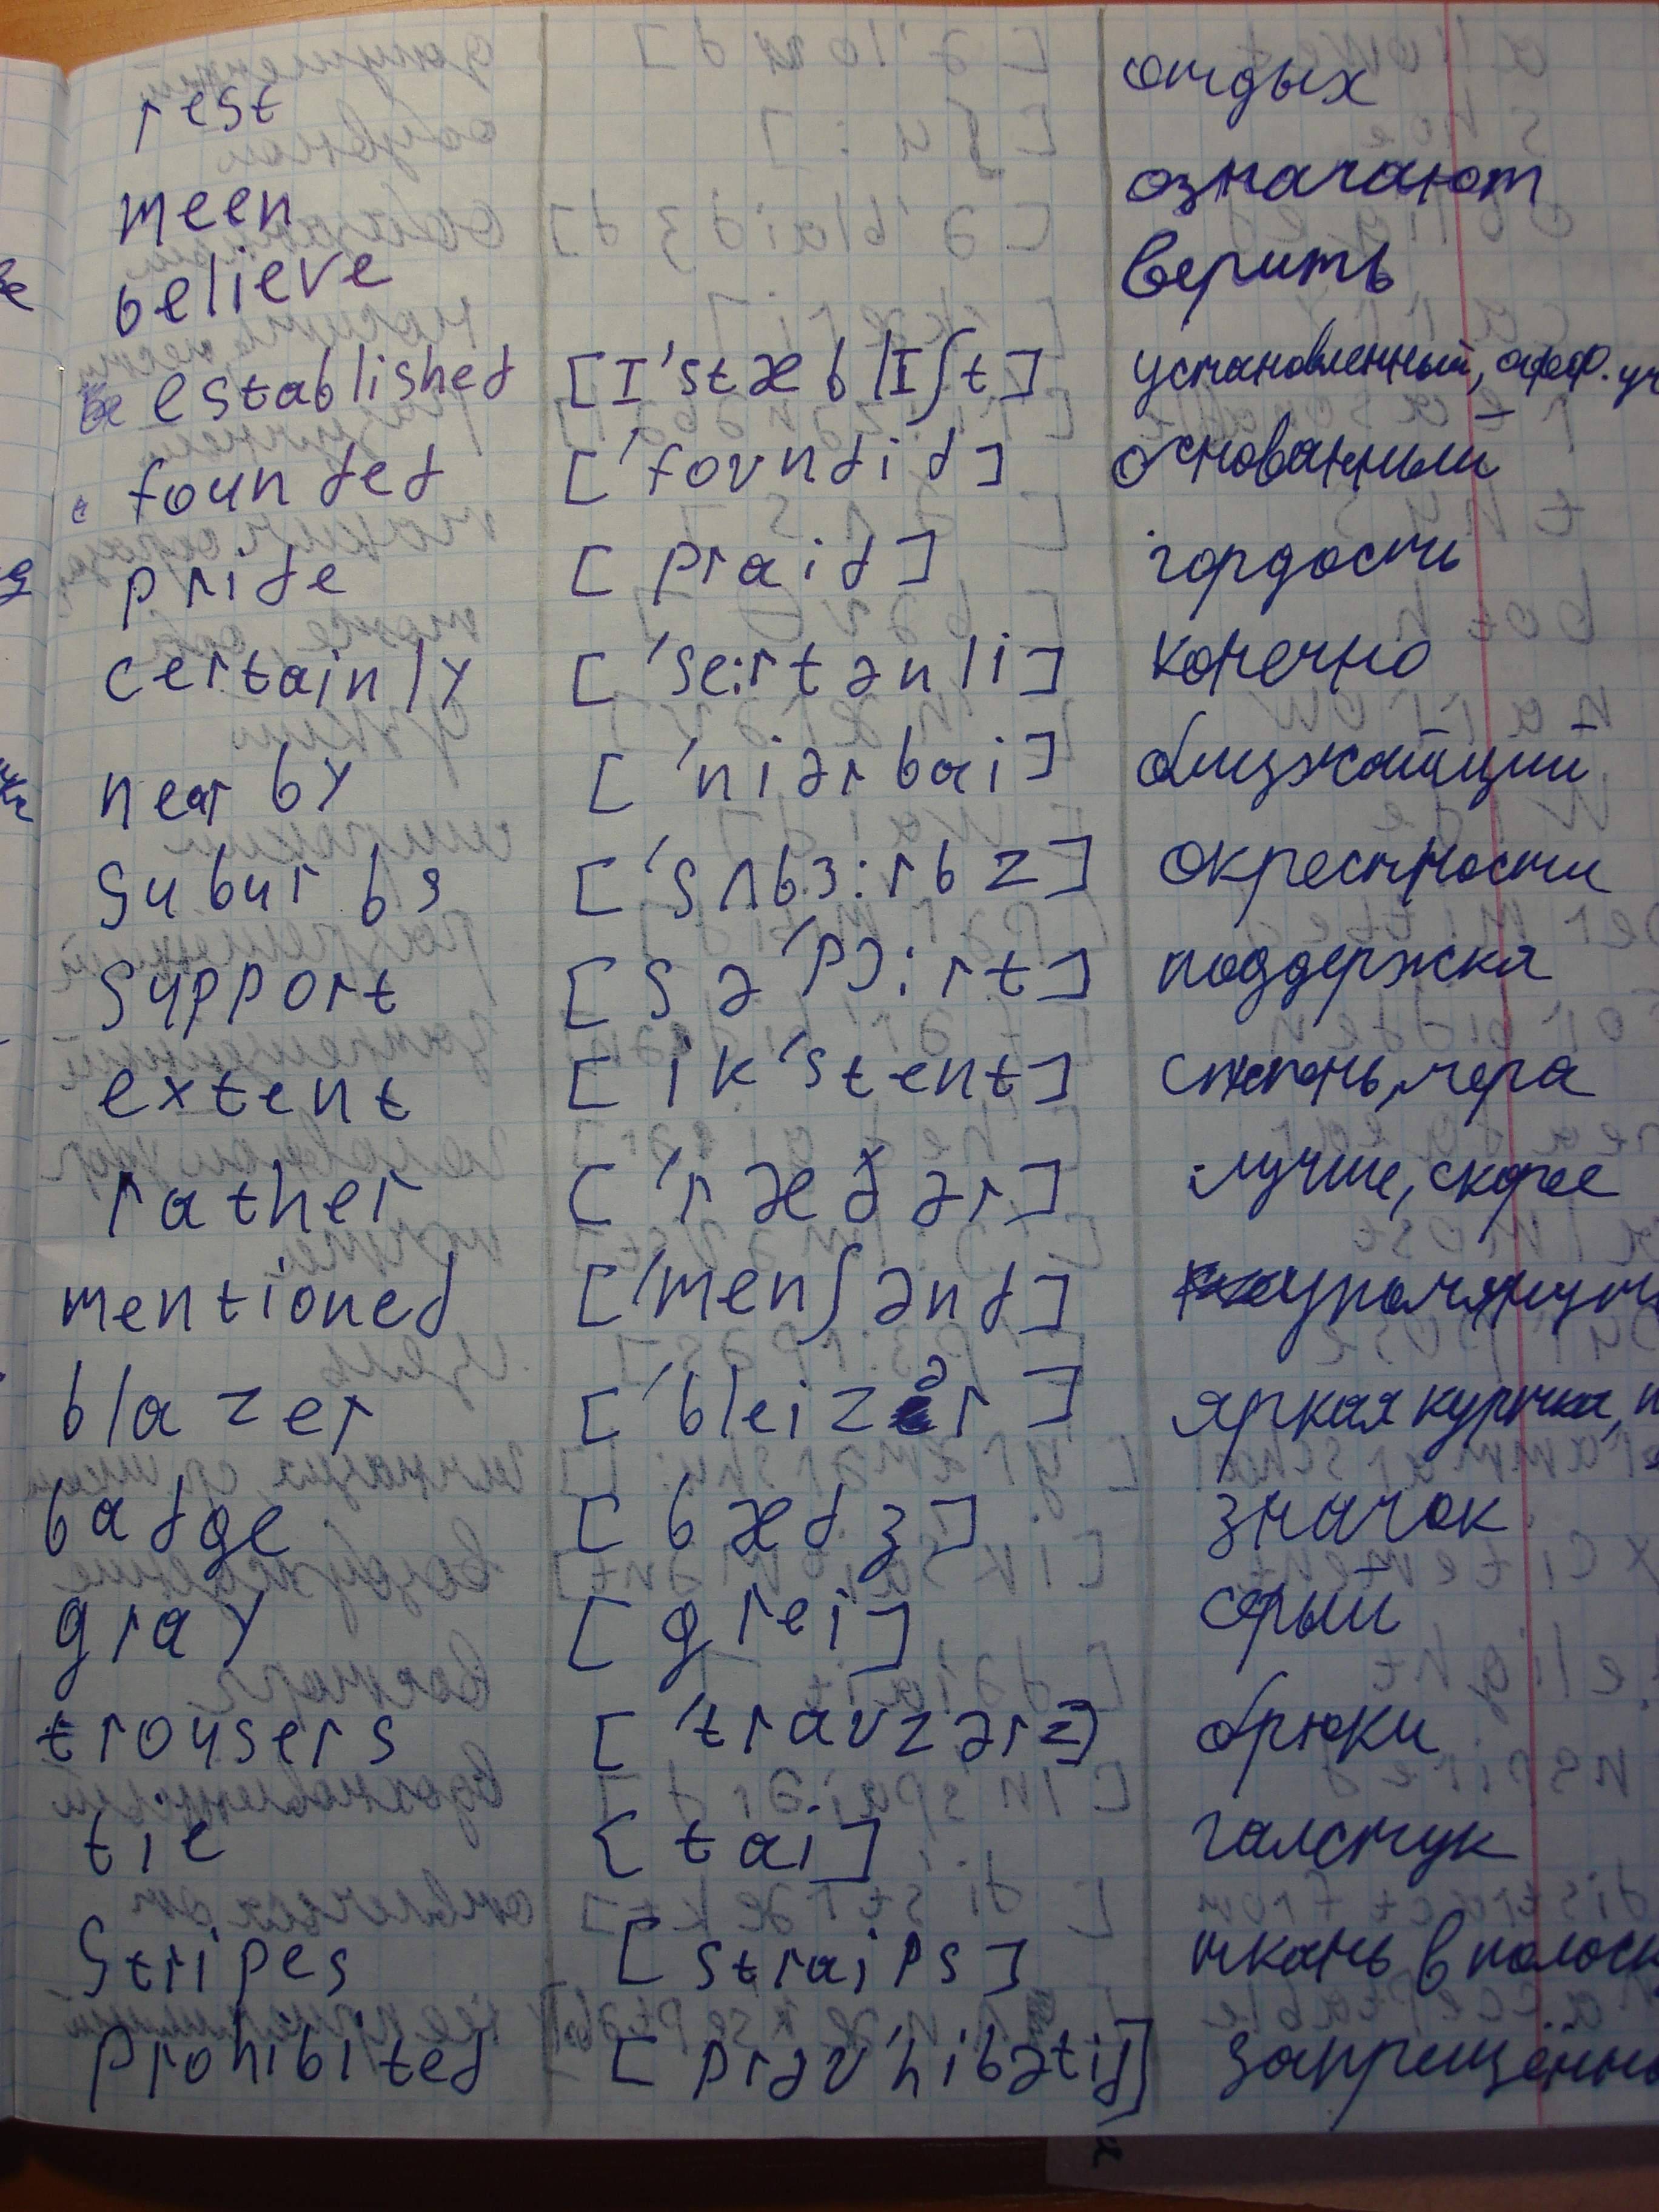 rest отдых
meen означают
believe верить
be established [I'stæblIʃt] установленный, офиц. уч
founded ['fovndid] основанный
pride [praid] гордость
certainly ['se:rtənli] конечно
near by ['niərbai] близжайщий
suburbs ['sʌbɜ:rbz] окрестности
support [sə'pɔ:rt] поддержка
extent [ik'stent] степень, мера
rather ['ræðər] лучше, скорее
mentioned ['menʃənd] упомянут
blazer ['bleizər] яркая куртка, п
badge [bædʒ] значок
gray [grei] серый
trousers ['travzərz] брюки
tie [tai] галстук
stripes [straips] ткань в полоск
prohibited [prəv'hibətid] запрещённы